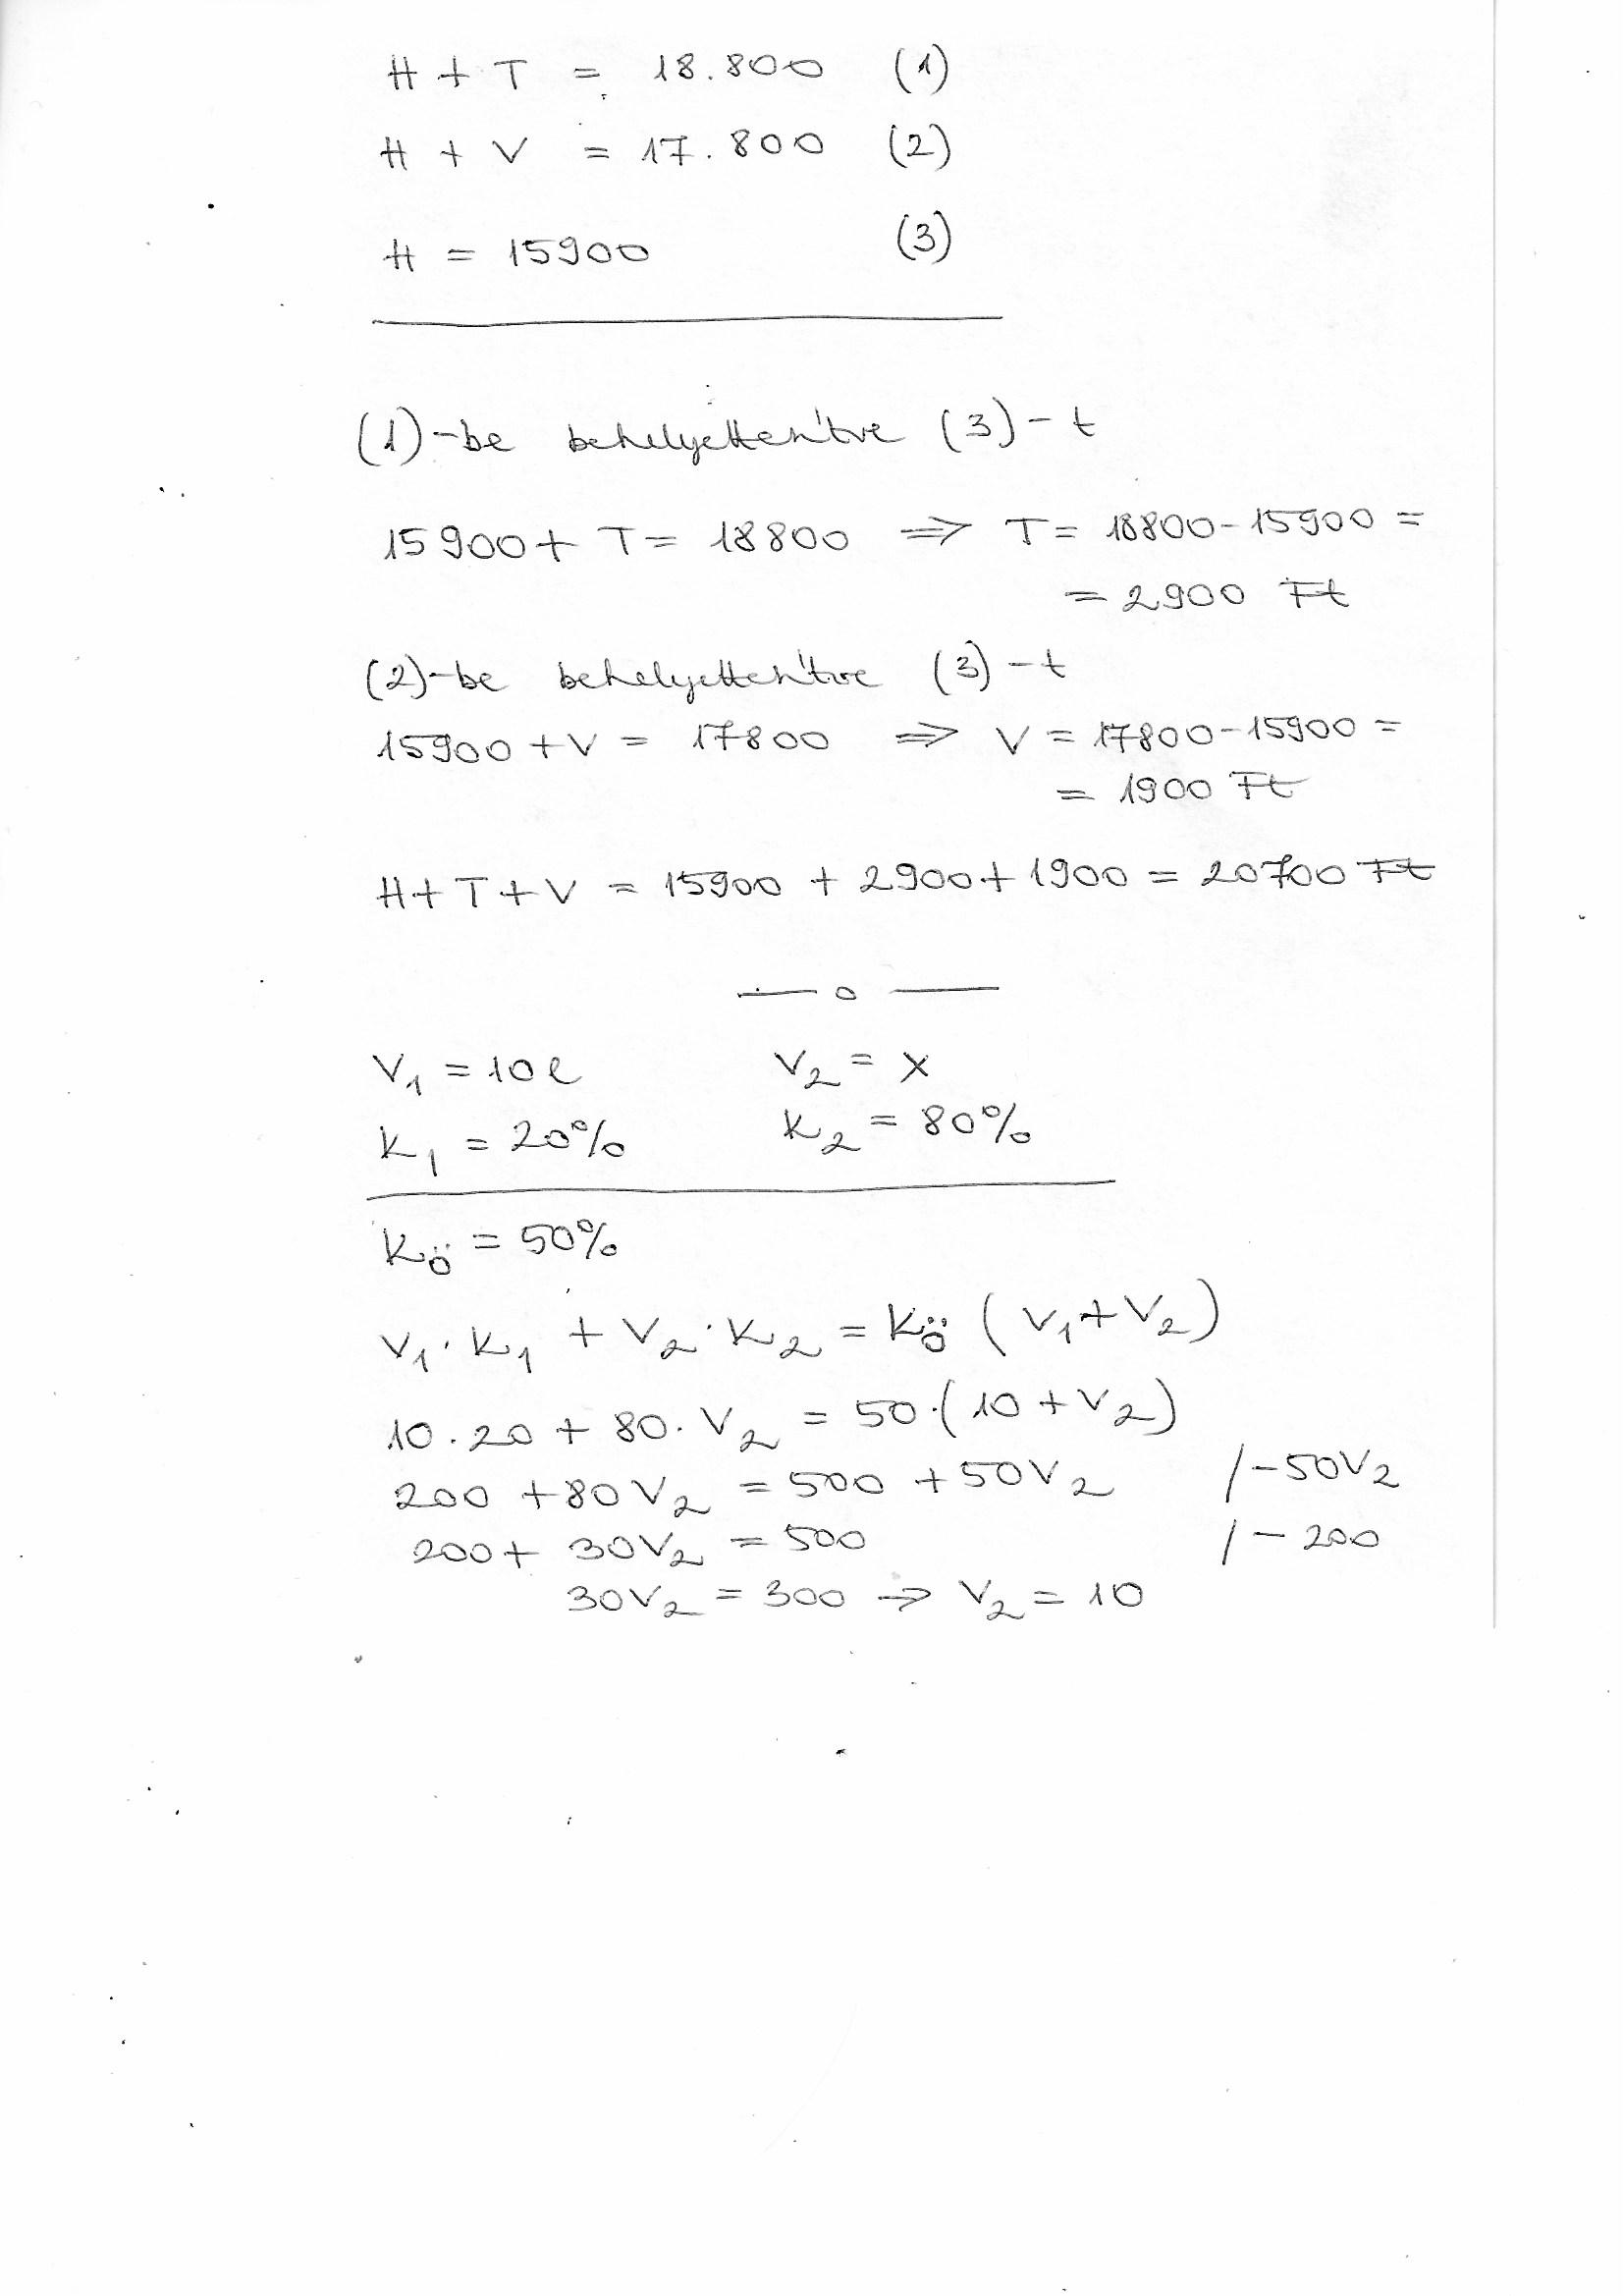 H + T = 18.800 (1)
H + V = 17.800 (2)
H = 15900 (3)
(1)-be behelyettesítve (3)-t
15900 + T = 18800 ⇒ T = 18800 - 15900 =
= 2900 Ft
(2)-be behelyettesítve (3)-t
15900 + V = 17800 ⇒ V = 17800 - 15900 =
= 1900 Ft
H + T + V = 15900 + 2900 + 1900 = 20700 Ft
— o —
V₁ = 10 l V₂ = x
K₁ = 20% K₂ = 80%
Kö = 50%
V₁ · K₁ + V₂ · K₂ = Kö (V₁ + V₂)
10 · 20 + 80 · V₂ = 50 · (10 + V₂)
200 + 80V₂ = 500 + 50V₂ /-50V₂
200 + 30V₂ = 500 /-200
30V₂ = 300 → V₂ = 10